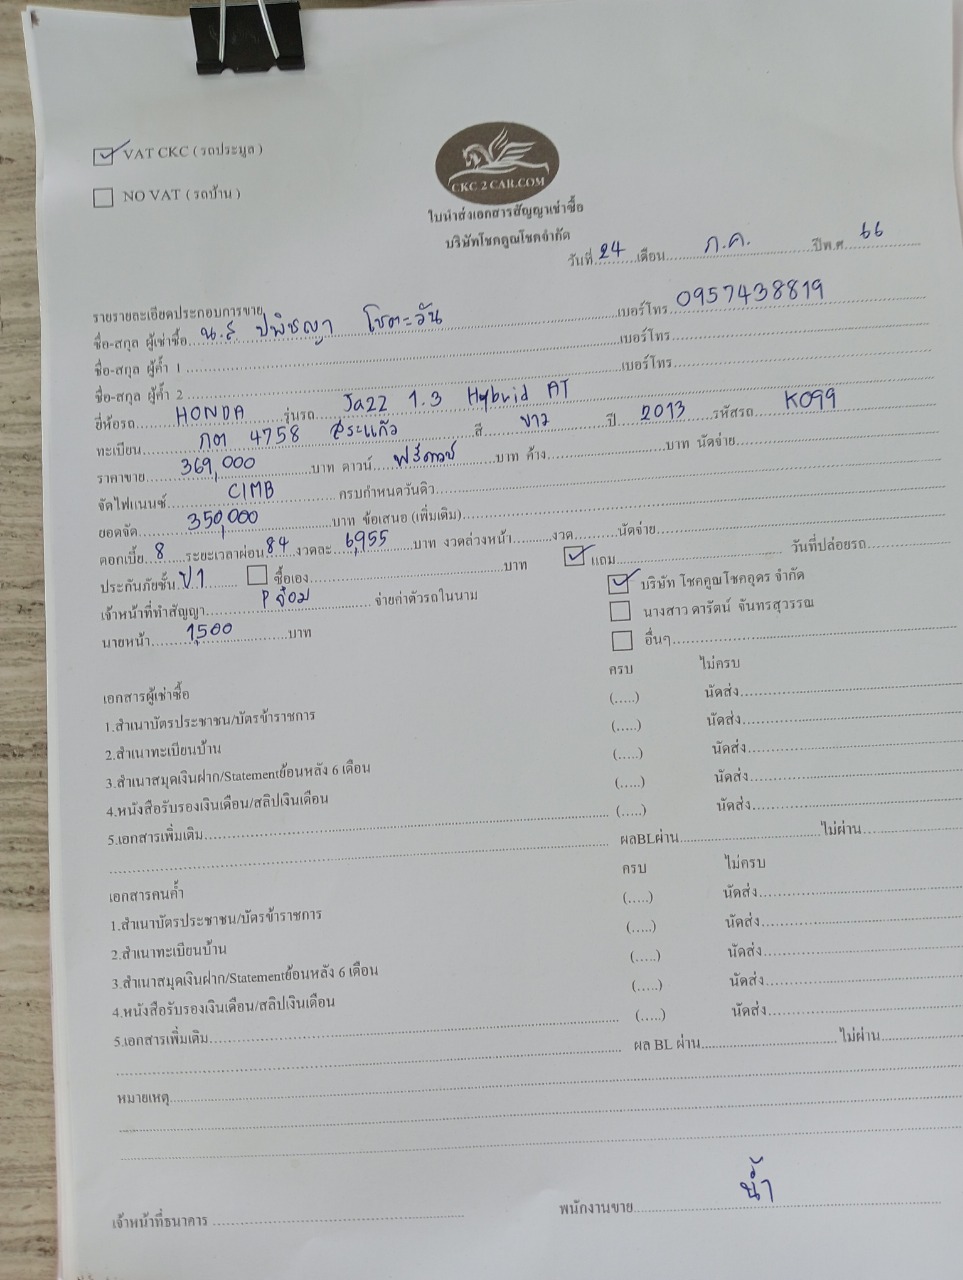 VAT CKC ( รถประมูล )
NO VAT ( รถบ้าน )
CKC 2 CAR.COM
ใบนำส่งเอกสารสัญญาเช่าซื้อ
บริษัทโชคคูณโชคจำกัด
วันที่ 24 เดือน ก.ค. ปีพ.ศ. 66
รายรายละเอียดประกอบการขาย
ชื่อ-สกุล ผู้เช่าซื้อ น.ส ปพิชญา โชตะวัน เบอร์โทร 0957438819
ชื่อ-สกุล ผู้ค้ำ 1 เบอร์โทร
ชื่อ-สกุล ผู้ค้ำ 2 เบอร์โทร
ยี่ห้อรถ HONDA รุ่นรถ Jazz 1.3 Hybrid AT
ทะเบียน กต 4758 สระแก้ว สี ขาว ปี 2013 รหัสรถ K099
ราคาขาย 369,000 บาท ดาวน์ ฟรีดาวน์ บาท ค้าง บาท นัดจ่าย
จัดไฟแนนซ์ CIMB ครบกำหนดวันคิว
ยอดจัด 350,000 บาท ข้อเสนอ (เพิ่มเติม)
ดอกเบี้ย 8 ระยะเวลาผ่อน 84 งวดละ 6,955 บาท งวดล่วงหน้า งวด นัดจ่าย
ประกันภัยชั้น ป1 ซื้อเอง บาท แถม วันที่ปล่อยรถ
เจ้าหน้าที่ทำสัญญา Pจ๋อม จ่ายค่าตัวรถในนาม บริษัท โชคคูณโชคอุดร จำกัด
นางสาว ดารัตน์ จันทรสุวรรณ
นายหน้า 1,500 บาท อื่นๆ
เอกสารผู้เช่าซื้อ ครบ ไม่ครบ
1.สำเนาบัตรประชาชน/บัตรข้าราชการ (.....) นัดส่ง
2.สำเนาทะเบียนบ้าน (.....) นัดส่ง
3.สำเนาสมุดเงินฝาก/Statementย้อนหลัง 6 เดือน (.....) นัดส่ง
4.หนังสือรับรองเงินเดือน/สลิปเงินเดือน (.....) นัดส่ง
5.เอกสารเพิ่มเติม (.....) นัดส่ง
ผลBLผ่าน ไม่ผ่าน
เอกสารคนค้ำ ครบ ไม่ครบ
1.สำเนาบัตรประชาชน/บัตรข้าราชการ (.....) นัดส่ง
2.สำเนาทะเบียนบ้าน (.....) นัดส่ง
3.สำเนาสมุดเงินฝาก/Statementย้อนหลัง 6 เดือน (.....) นัดส่ง
4.หนังสือรับรองเงินเดือน/สลิปเงินเดือน (.....) นัดส่ง
5.เอกสารเพิ่มเติม (.....) นัดส่ง
ผล BL ผ่าน ไม่ผ่าน
หมายเหตุ
เจ้าหน้าที่ธนาคาร พนักงานขาย น้ำ